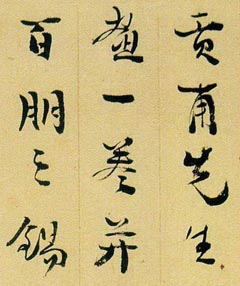 貢甫先生
畫一卷并
百朋之錫